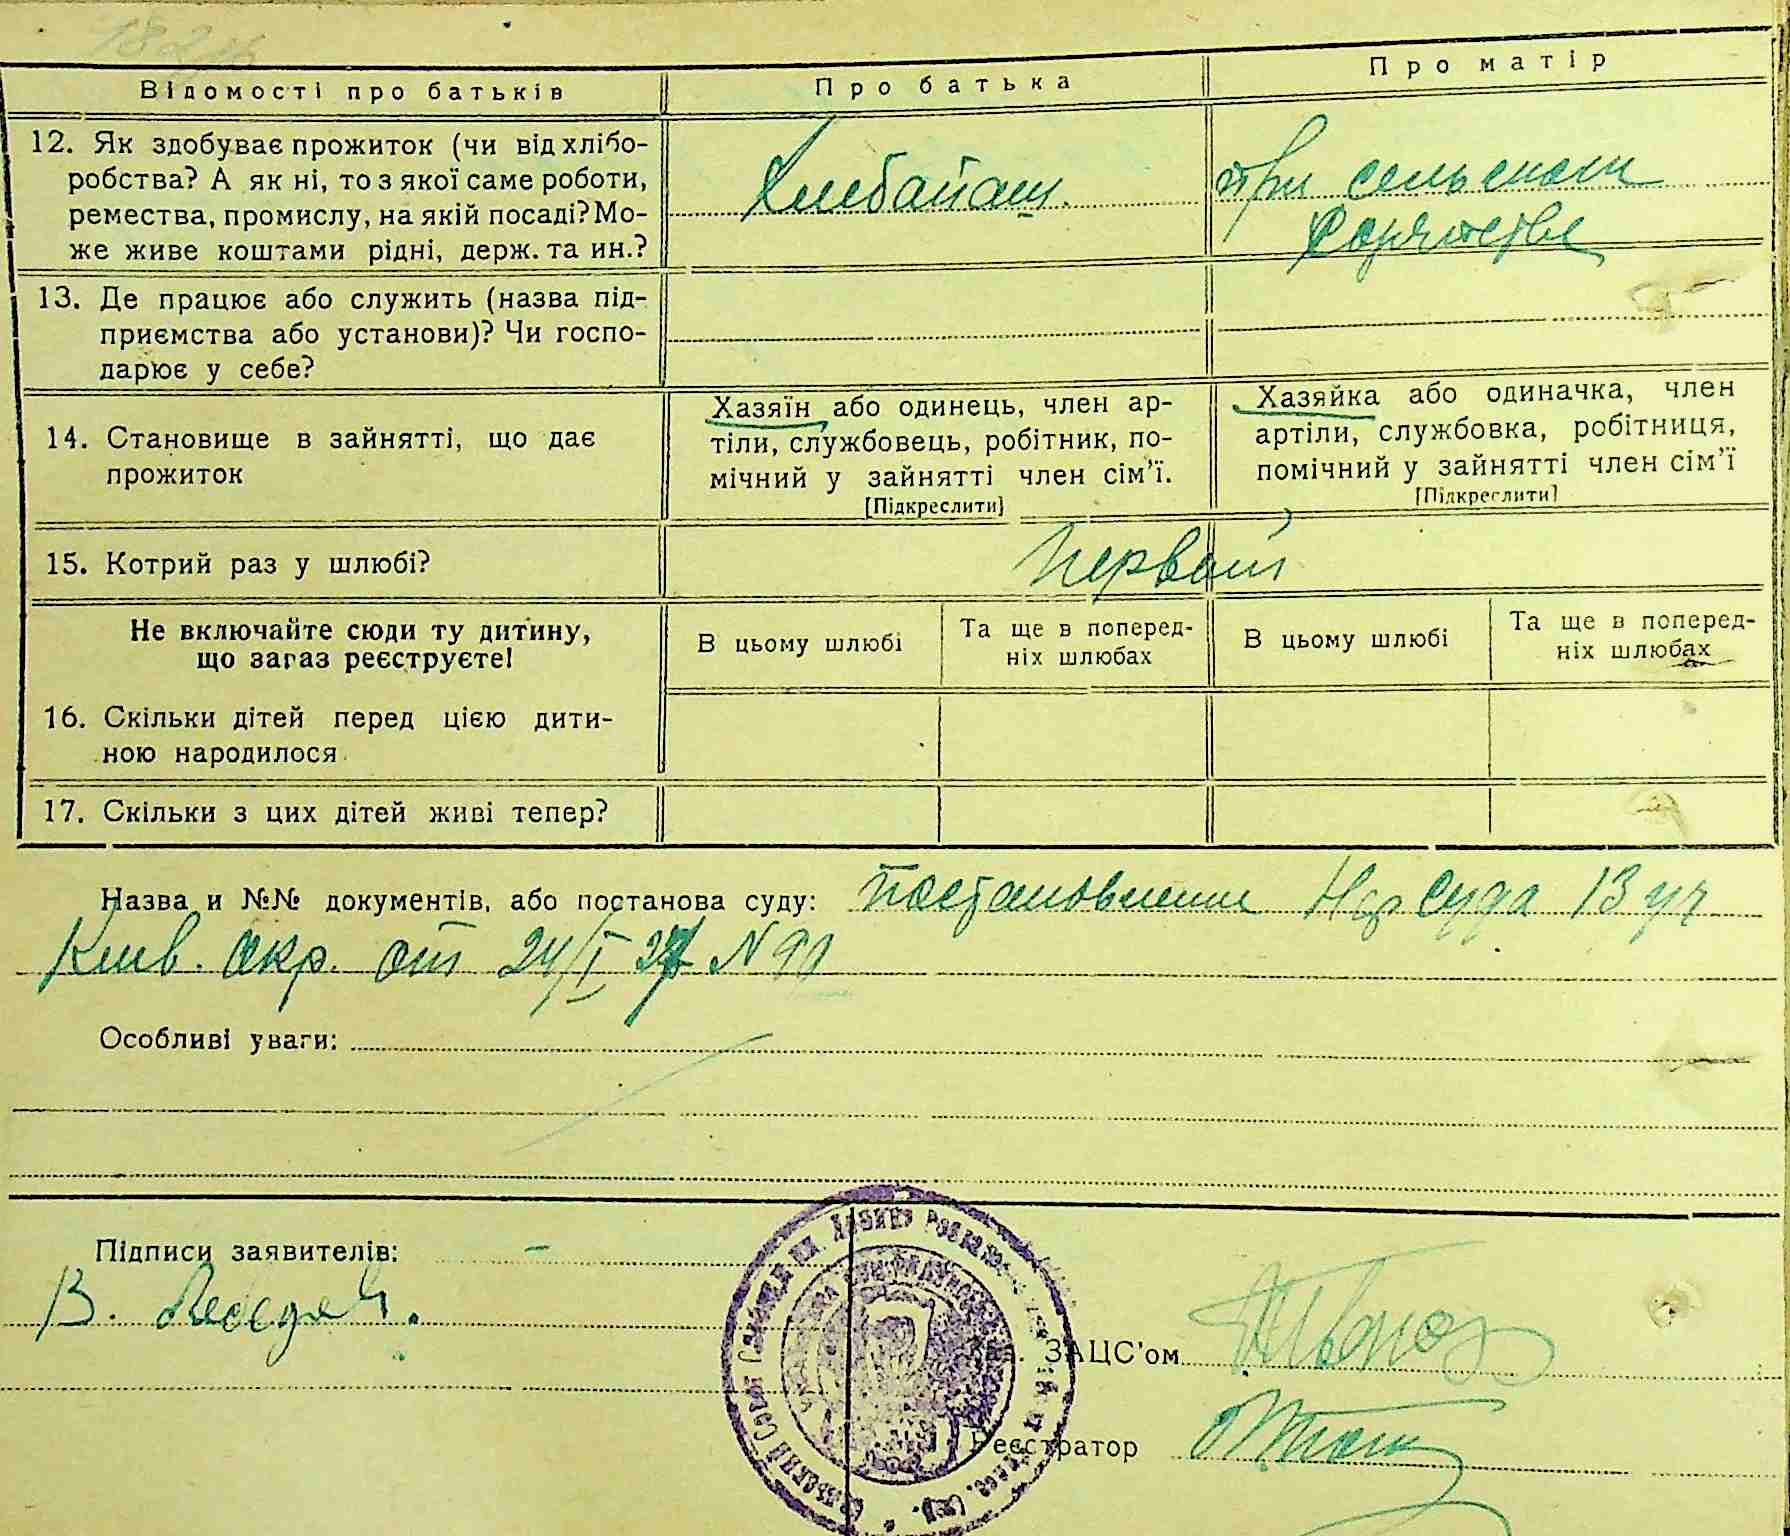 Відомості про батьків
Про батька
Про матір
12. Як здобуває прожиток (чи від хлібо-
робства? А як ні, то з якої саме роботи,
ремества, промислу, на якій посаді? Мо-
же живе коштами рідні, держ. та ин.?
при сельском
хозяйстве
13. Де працює або служить (назва під-
приємства або установи)? Чи госпо-
дарює у себе?
14. Становище в зайнятті, що дає
прожиток
Хазяїн або одинець, член ар-
тіли, службовець, робітник, по-
мічний у зайнятті член сім'ї.
[Підкреслити]
Хазяйка або одиначка, член
артіли, службовка, робітниця,
помічний у зайнятті член сім'ї
[Підкреслити]
15. Котрий раз у шлюбі?
первый
Не включайте сюди ту дитину,
що зараз реєструєте!
В цьому шлюбі
Та ще в поперед-
ніх шлюбах
В цьому шлюбі
Та ще в поперед-
ніх шлюбах
16. Скільки дітей перед цією дити-
ною народилося
17. Скільки з цих дітей живі тепер?
Назва и №№ документів, або постанова суду: постановление Нар суда 13 уч
Киев. окр. от 24/I 27 N 90
Особливі уваги:
Підписи заявителів:
В.
ЗАЦС'ом
Реєстратор